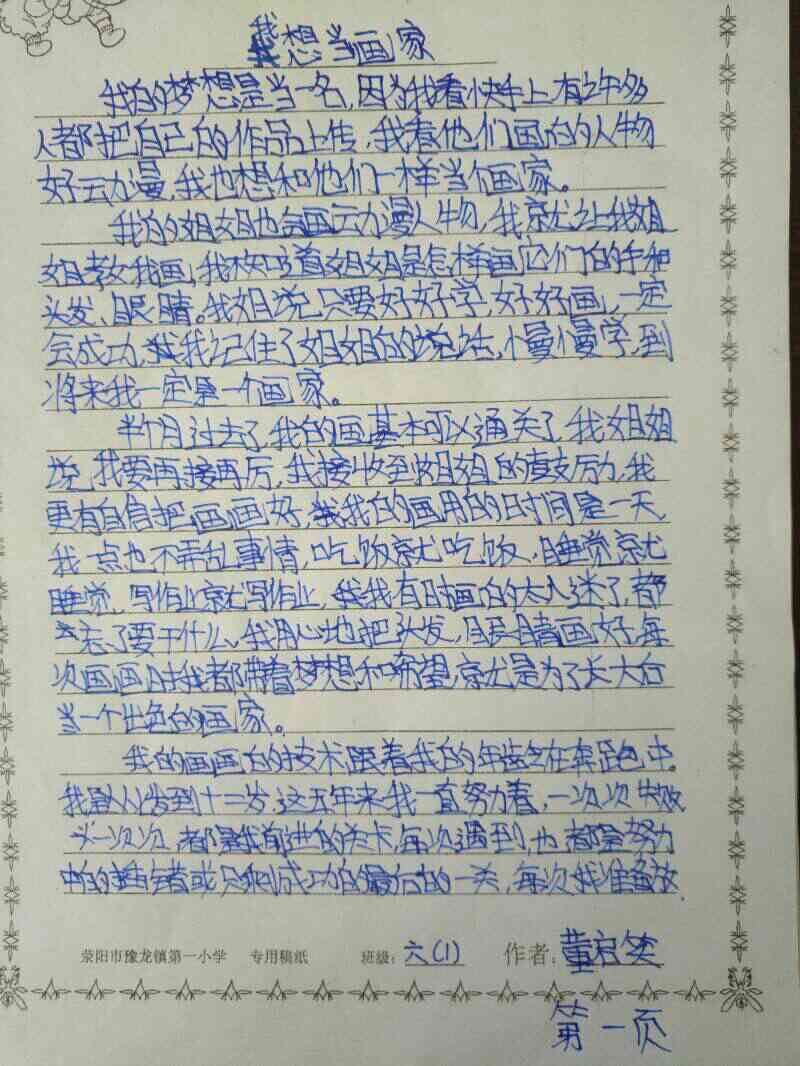 我想当画家
我的梦想是当一名,因为我看快手上有许多
人都把自己的作品上传,我看他们画的人物
好动漫,我也想和他们一样当个画家。
我的姐姐也会画动漫人物,我就让我姐
姐教我画,我不知道姐姐是怎样画它们的手和
头发、眼睛。我姐说,只要好好学,好好画,一定
会成功,我记住了姐姐的说话,慢慢学,到
将来我一定是一个画家。
半个月过去了,我的画基本可以通关了,我姐姐
说,我要再接再厉,我接收到姐姐的鼓励,我
更有自信把画画好,我的画用的时间是一天,
我一点也不弄乱事情,吃饭就吃饭,睡觉就
睡觉,写作业就写作业,我有时画的太入迷了,都
忘了要干什么,我用心地把头发,眼睛画好,每
次画画时我都带着梦想和希望,就是为了长大后
当一个出色的画家。
我的画画的技术跟着我的年龄在奔跑中。
我从到十二岁,这五年来我一直努力着,一次次失败
一次次,都是我前进的关卡,每次遇到,也都是努力
中的或只剩成功的最后的一关,每次我准备放
荥阳市豫龙镇第一小学 专用稿纸 班级:六(1) 作者:董
第一页